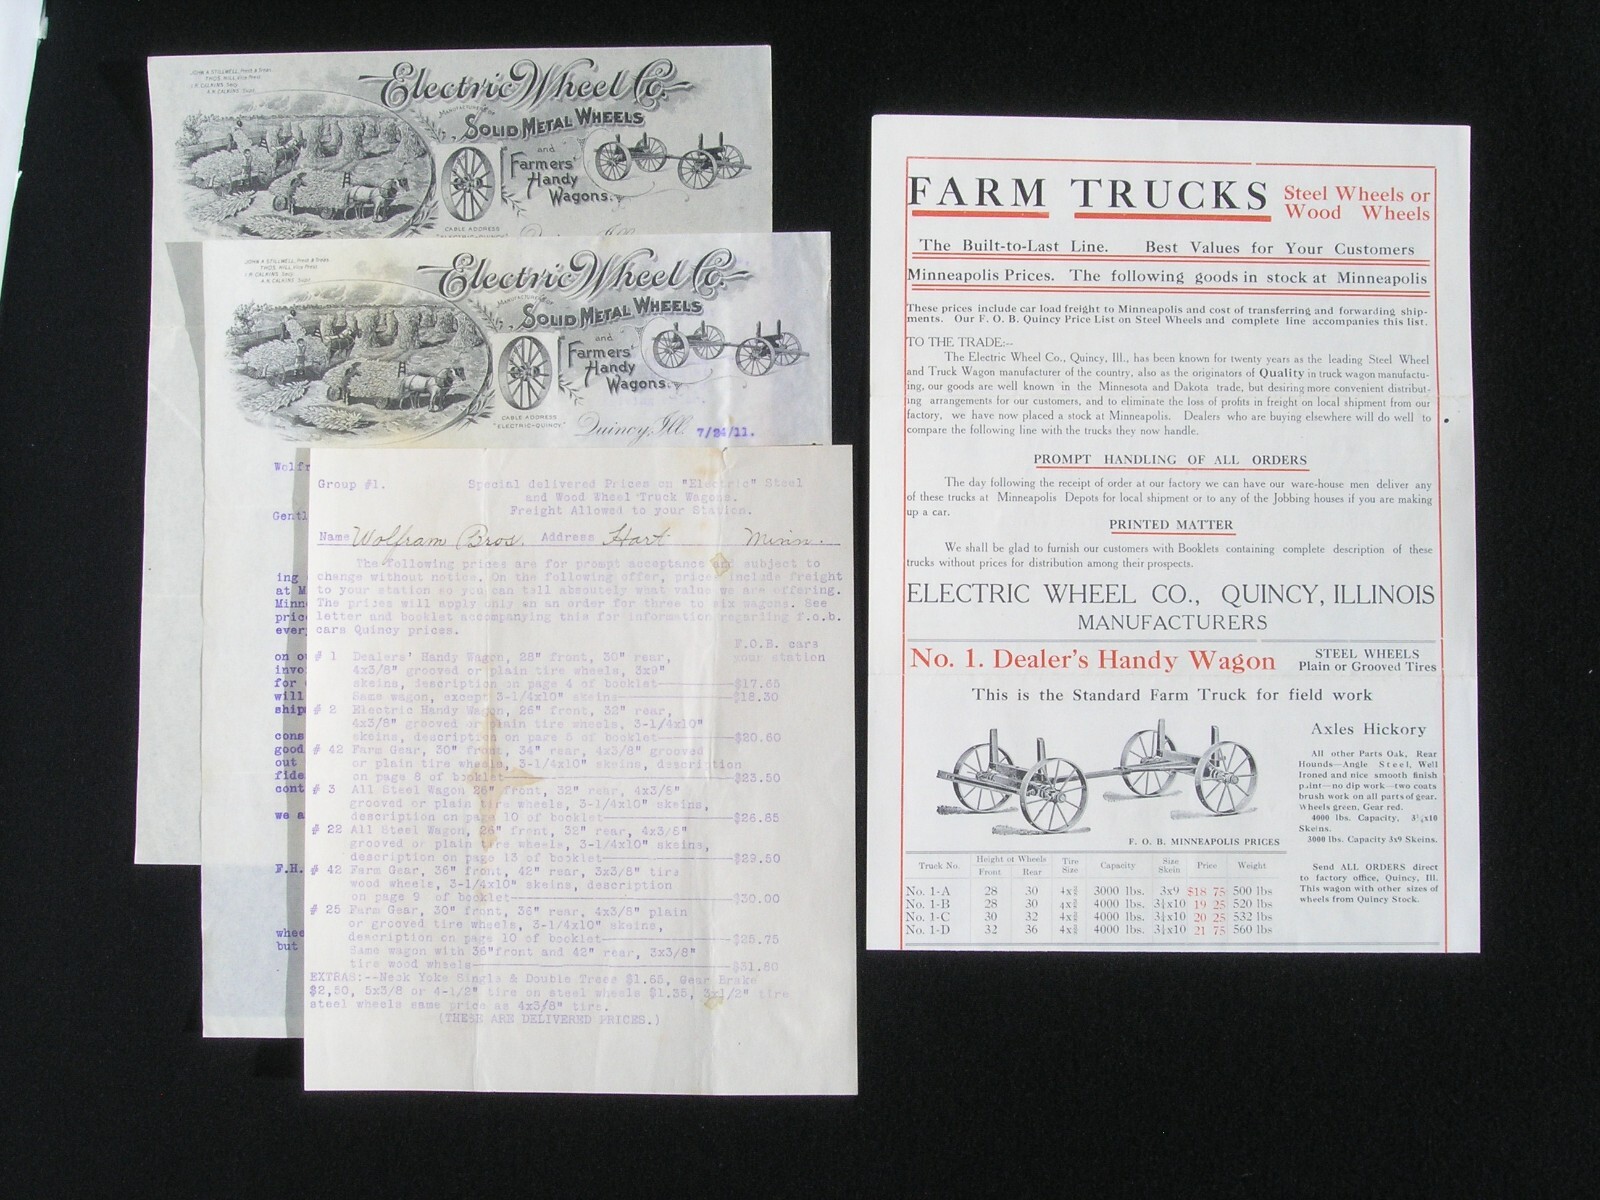 JOHN A STILLWELL, Prest & Treas.
THOS. HILL, Vice Prest
J.R. CALKINS, Secy.
A.N. CALKINS, Supt.
Electric Wheel Co.
MANUFACTURERS OF
SOLID METAL WHEELS
and
Farmers'
Handy
Wagons.
CABLE ADDRESS
"ELECTRIC-QUINCY"
Quincy, Ill.
JOHN A STILLWELL, Prest & Treas.
THOS. HILL, Vice Prest
J.R. CALKINS, Secy.
A.N. CALKINS, Supt.
Electric Wheel Co.
MANUFACTURERS OF
SOLID METAL WHEELS
and
Farmers'
Handy
Wagons.
CABLE ADDRESS
"ELECTRIC-QUINCY"
Quincy, Ill. 7/24/11.
Wolfr
Gentl
ing
at M
Minn
pric
ever
on o
invo
for
will
ship
cons
good
out
fide
cont
we a
F.H.
whee
but
Group #1. Special delivered Prices on "Electric" Steel
and Wood Wheel Truck Wagons.
Freight Allowed to your Station.
Name Wolfram Bros. Address Hart Minn.
The following prices are for prompt acceptance and subject to
change without notice. On the following offer, prices include freight
to your station so you can tell absolutely what value we are offering.
The prices will apply only on an order for three to six wagons. See
letter and booklet accompanying this for information regarding f.o.b.
cars Quincy prices.
F.O.B. cars
your station
# 1 Dealers' Handy Wagon, 28" front, 30" rear,
4x3/8" grooved or plain tire wheels, 3x9"
skeins, description on page 4 of booklet $17.65
Same wagon, except 3-1/4x10" skeins $18.30
# 2 Electric Handy Wagon, 26" front, 32" rear,
4x3/8" grooved or plain tire wheels, 3-1/4x10"
skeins, description on page 5 of booklet $20.60
# 42 Farm Gear, 30" front, 34" rear, 4x3/8" grooved
or plain tire wheels, 3-1/4x10" skeins, description
on page 8 of booklet $23.50
# 3 All Steel Wagon 26" front, 32" rear, 4x3/8"
grooved or plain tire wheels, 3-1/4x10" skeins,
description on page 10 of booklet $26.65
# 22 All Steel Wagon, 26" front, 32" rear, 4x3/8"
grooved or plain tire wheels, 3-1/4x10" skeins,
description on page 13 of booklet $29.50
# 42 Farm Gear, 36" front, 42" rear, 3x3/8" tire
wood wheels, 3-1/4x10" skeins, description
on page 9 of booklet $30.00
# 25 Farm Gear, 30" front, 36" rear, 4x3/8" plain
or grooved tire wheels, 3-1/4x10" skeins,
description on page 10 of booklet $25.75
Same wagon with 36"front and 42" rear, 3x3/8"
tire wood wheels $31.80
EXTRAS:--Neck Yoke Single & Double Trees $1.65, Gear Brake
$2,50, 5x3/8 or 4-1/2" tire on steel wheels $1.35, 3x1/2" tire
steel wheels same price as 4x3/8" tire.
(THESE ARE DELIVERED PRICES.)
FARM TRUCKS Steel Wheels or
Wood Wheels
The Built-to-Last Line. Best Values for Your Customers
Minneapolis Prices. The following goods in stock at Minneapolis
These prices include car load freight to Minneapolis and cost of transferring and forwarding ship-
ments. Our F. O. B. Quincy Price List on Steel Wheels and complete line accompanies this list.
TO THE TRADE:--
The Electric Wheel Co., Quincy, Ill., has been known for twenty years as the leading Steel Wheel
and Truck Wagon manufacturer of the country, also as the originators of Quality in truck wagon manufactu-
ing, our goods are well known in the Minnesota and Dakota trade, but desiring more convenient distribut-
ing arrangements for our customers, and to eliminate the loss of profits in freight on local shipment from our
factory, we have now placed a stock at Minneapolis. Dealers who are buying elsewhere will do well to
compare the following line with the trucks they now handle.
PROMPT HANDLING OF ALL ORDERS
The day following the receipt of order at our factory we can have our ware-house men deliver any
of these trucks at Minneapolis Depots for local shipment or to any of the Jobbing houses if you are making
up a car.
PRINTED MATTER
We shall be glad to furnish our customers with Booklets containing complete description of these
trucks without prices for distribution among their prospects.
ELECTRIC WHEEL CO., QUINCY, ILLINOIS
MANUFACTURERS
No. 1. Dealer's Handy Wagon STEEL WHEELS
Plain or Grooved Tires
This is the Standard Farm Truck for field work
Axles Hickory
All other Parts Oak, Rear
Hounds—Angle Steel, Well
Ironed and nice smooth finish
paint—no dip work—two coats
brush work on all parts of gear,
Wheels green, Gear red.
4000 lbs. Capacity, 3¼x10
Skeins.
3000 lbs. Capacity 3x9 Skeins.
Send ALL ORDERS direct
to factory office, Quincy, Ill.
This wagon with other sizes of
wheels from Quincy Stock.
F. O. B. MINNEAPOLIS PRICES
Truck No. Height of Wheels Front Rear Tire Size Capacity Size Skein Price Weight
No. 1-A 28 30 4x⅜ 3000 lbs. 3x9 $18 75 500 lbs
No. 1-B 28 30 4x⅜ 4000 lbs. 3¼x10 19 25 520 lbs
No. 1-C 30 32 4x⅜ 4000 lbs. 3¼x10 20 25 532 lbs
No. 1-D 32 36 4x⅜ 4000 lbs. 3¼x10 21 75 560 lbs